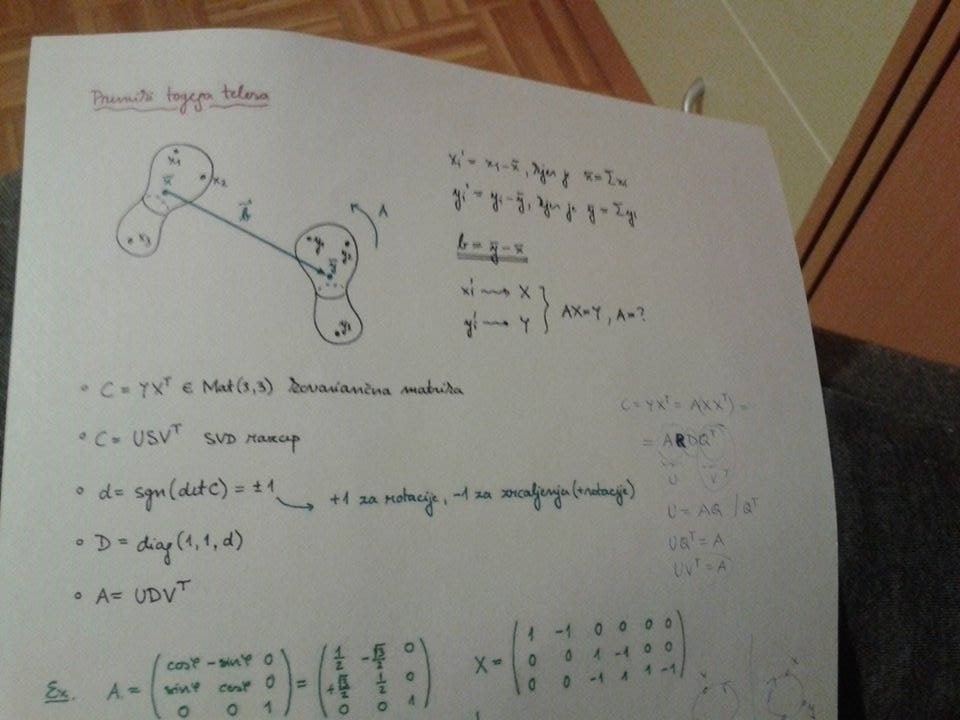 Premiki togega telesa
x₁
x₂
x̄
x₃
b⃗
A
y₁
y₂
ȳ
y₃
xᵢ' = xᵢ - x̄, kjer je x̄ = Σxᵢ
yᵢ' = yᵢ - ȳ, kjer je ȳ = Σyᵢ
b = ȳ - x̄
xᵢ' ⟿ X
yᵢ' ⟿ Y
} AX=Y, A=?
◦ C = YXᵀ ∈ Mat(3,3) kovariančna matrika
◦ C = USVᵀ SVD razcep
◦ d = sgn(det C) = ±1 → +1 za rotacije, -1 za zrcaljenja (+rotacije)
◦ D = diag(1,1,d)
◦ A = UDVᵀ
C = YXᵀ = A(XXᵀ) =
= AQDQᵀ
U Vᵀ
U = AQ /Qᵀ
UQᵀ = A
UVᵀ = A
Ex. A = (cosφ -sinφ 0) = (1/2 -√3/2 0) X = (1 -1 0 0 0 0)
(sinφ cosφ 0) (+√3/2 1/2 0) (0 0 1 -1 0 0)
(0 0 1) (0 0 1) (0 0 -1 1 1 -1)